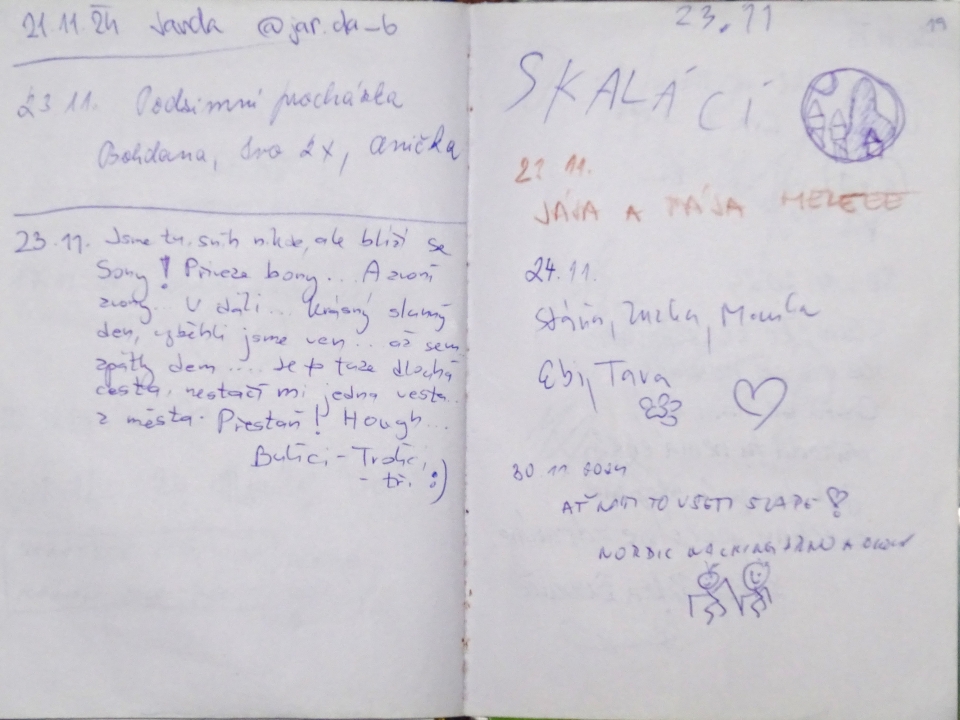 21.11.24 Jarda @jar.da_b
23 11. Podzimní procházka
Bohdana, Ivo 2x, Anička
23.11. Jsme tu, sníh nikde, ale blíží se
Sony! Přiveze bony... A zvoní
zvony... V dáli... krásný slunný
den, vyběhli jsme ven... až sem
zpátky dem.... Je to taze dlouhá
cesta, nestačí mi jedna vesta..
z města. Přestaň! Hough...
- tři :)
23.11
19
SKALÁCI
11.
JÁJA A PÁJA
24.11.
Ebi, Tara
30 11 2024
AŤ NÁM TO VŠEM ŠLAPE
NORDIC WALKING